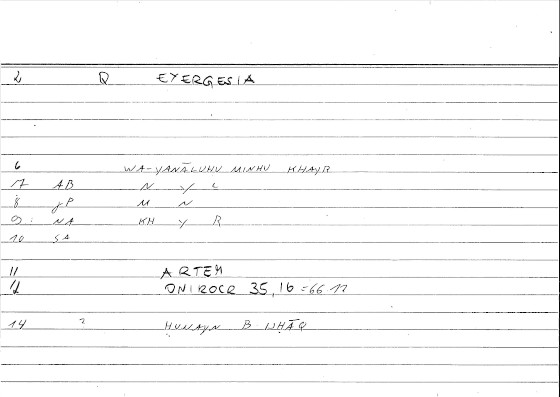 2 Q EYERGESIA
6 WA-YANĀLUHU MINHU KHAYR
7 AB N Y L
8 M N
9: NA KH Y R
10 SA
11 ARTEM
12 ONIROCR 35,16 =66
14 ? ḤUNAYN B ISḤĀQ